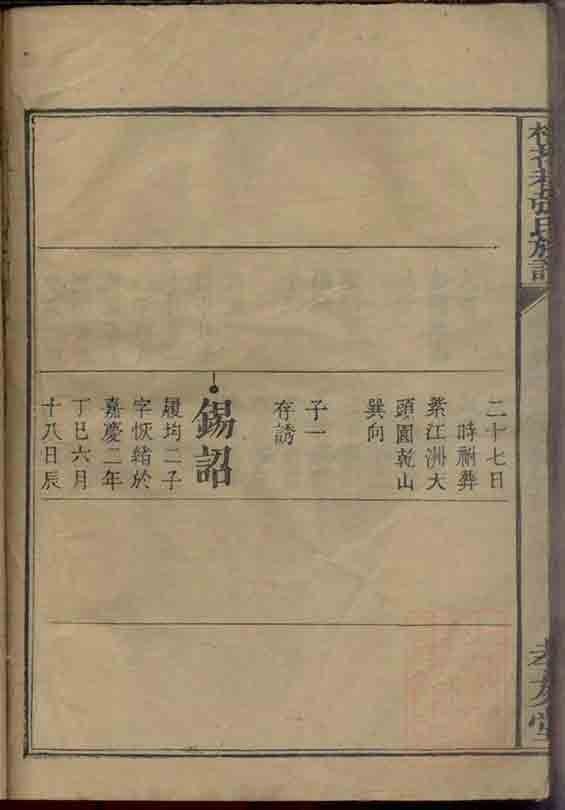 張氏族譜
孝友堂
二十七日
時祔葬
江洲大
頭園乾山
巽向
子一
存誘
錫詔
履均二子
字恢緒於
嘉慶二年
丁巳六月
十八日辰